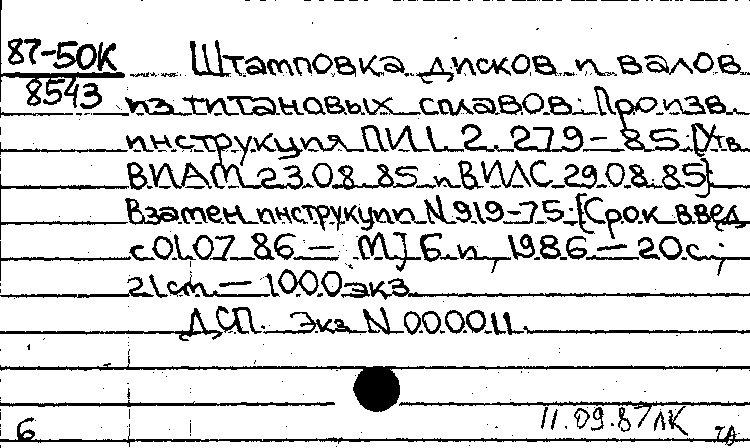 87-50К Штамповка дисков и валов
8543 из титановых сплавов: Произв.
инструкция ПИ1.2.279-85: [Утв
ВИАМ 23.08.85 и ВИЛС 29.08.85]:
Взамен инструкции N919-75: [Срок введ
с 01.07 86 — М] Б.и, 1986 — 20с.;
21см. — 1000экз
ДСП. Экз N 000011.
11.09.87 ЛК
6